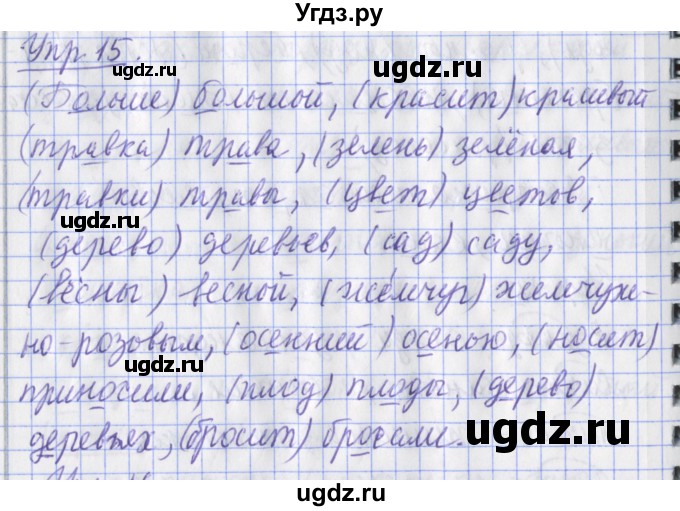 Угдз.ру
Упр 15.
ugdz.ru
ugdz.ru
(Больше) большой, (красит) красивый
(травка) трава, (зелень) зелёная,
ugdz.ru
(травки) травы, (цвет) цветов,
ugdz.ru
(дерево) деревьев, (сад) саду,
(вёсны) весной, (жемчуг) жемчуж-
но-розовым, (осенний) осенью, (носит)
ugdz.ru
приносили, (плод) плоды, (дерево)
ugdz.ru
деревьях, (бросит) бросали.
ugdz.ru
ugdz.ru